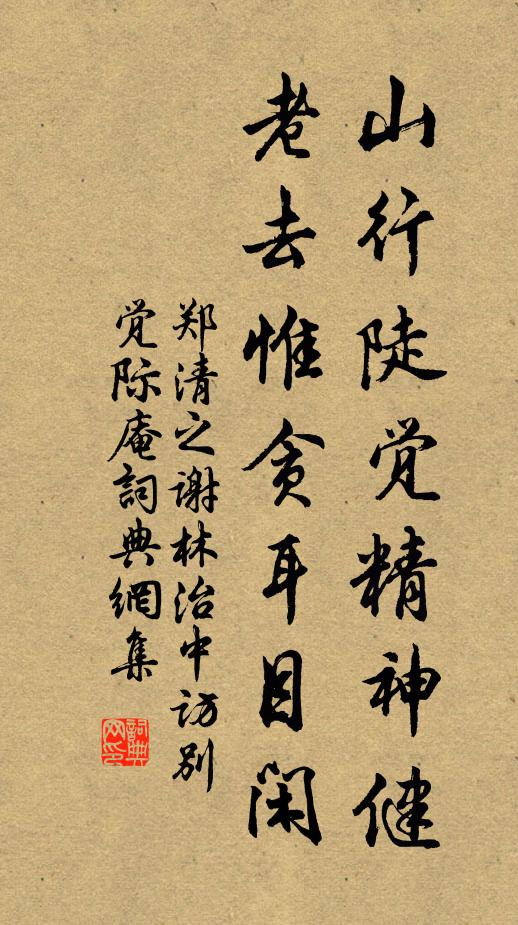 山行陡觉精神健
老去惟贪耳目闲
郑清之谢林治中访别
觉际庵詞典網集
詞典
网印